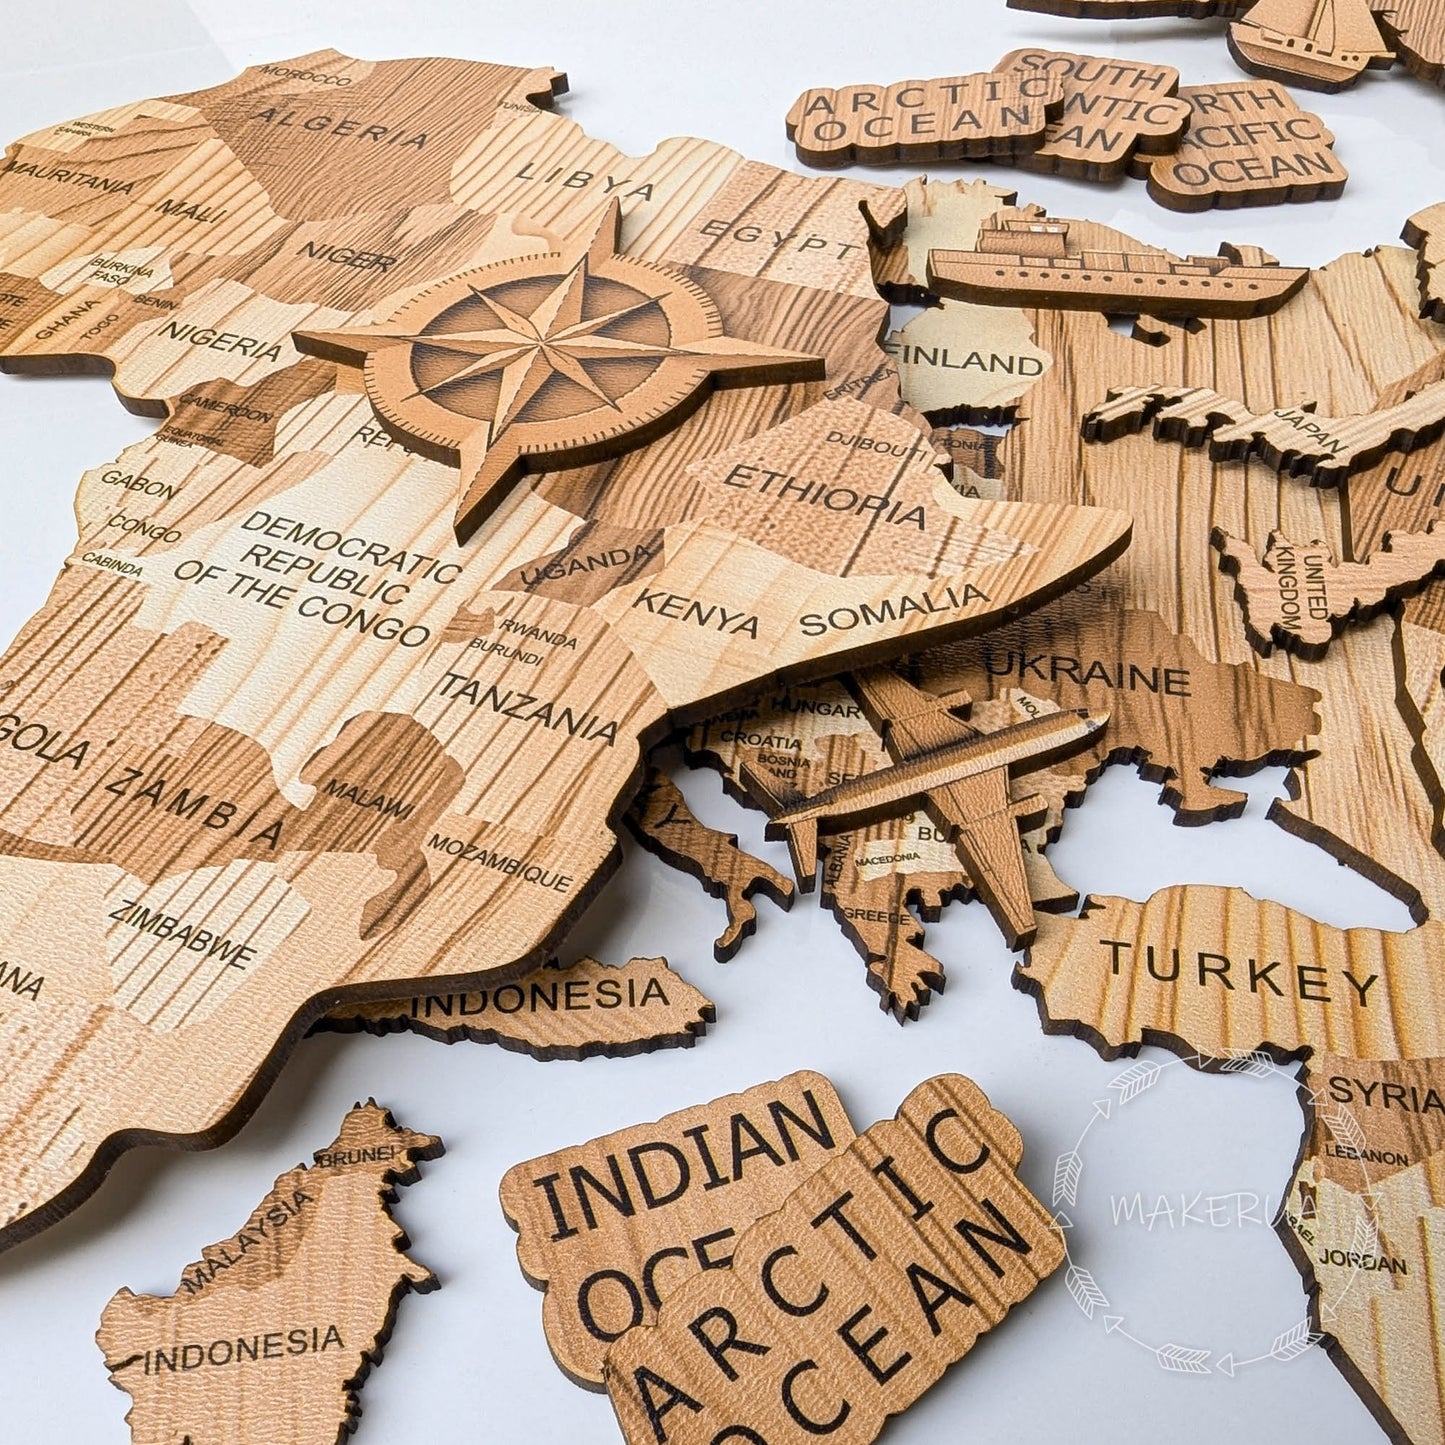 MOROCCO
ALGERIA
TUNISIA
WESTERN
SAHARA
MAURITANIA
MALI
LIBYA
EGYPT
NIGER
BURKINA
FASO
GHANA
TOGO
BENIN
NIGERIA
CAMEROON
EQUATORIAL
GUINEA
GABON
CONGO
CABINDA
DEMOCRATIC
REPUBLIC
OF THE CONGO
ERITREA
DJIBOUTI
ETHIOPIA
UGANDA
KENYA
SOMALIA
RWANDA
BURUNDI
TANZANIA
ZAMBIA
MALAWI
MOZAMBIQUE
ZIMBABWE
ARCTIC
OCEAN
SOUTH
NTIC
EAN
RTH
ACIFIC
OCEAN
FINLAND
JAPAN
UNITED
KINGDOM
UKRAINE
HUNGAR
CROATIA
BOSNIA
AND
ALBANIA
MACEDONIA
GREECE
TURKEY
SYRIA
LEBANON
JORDAN
INDONESIA
BRUNEI
MALAYSIA
INDONESIA
INDIAN
OCE
ARCTIC
OCEAN
MAKERUA